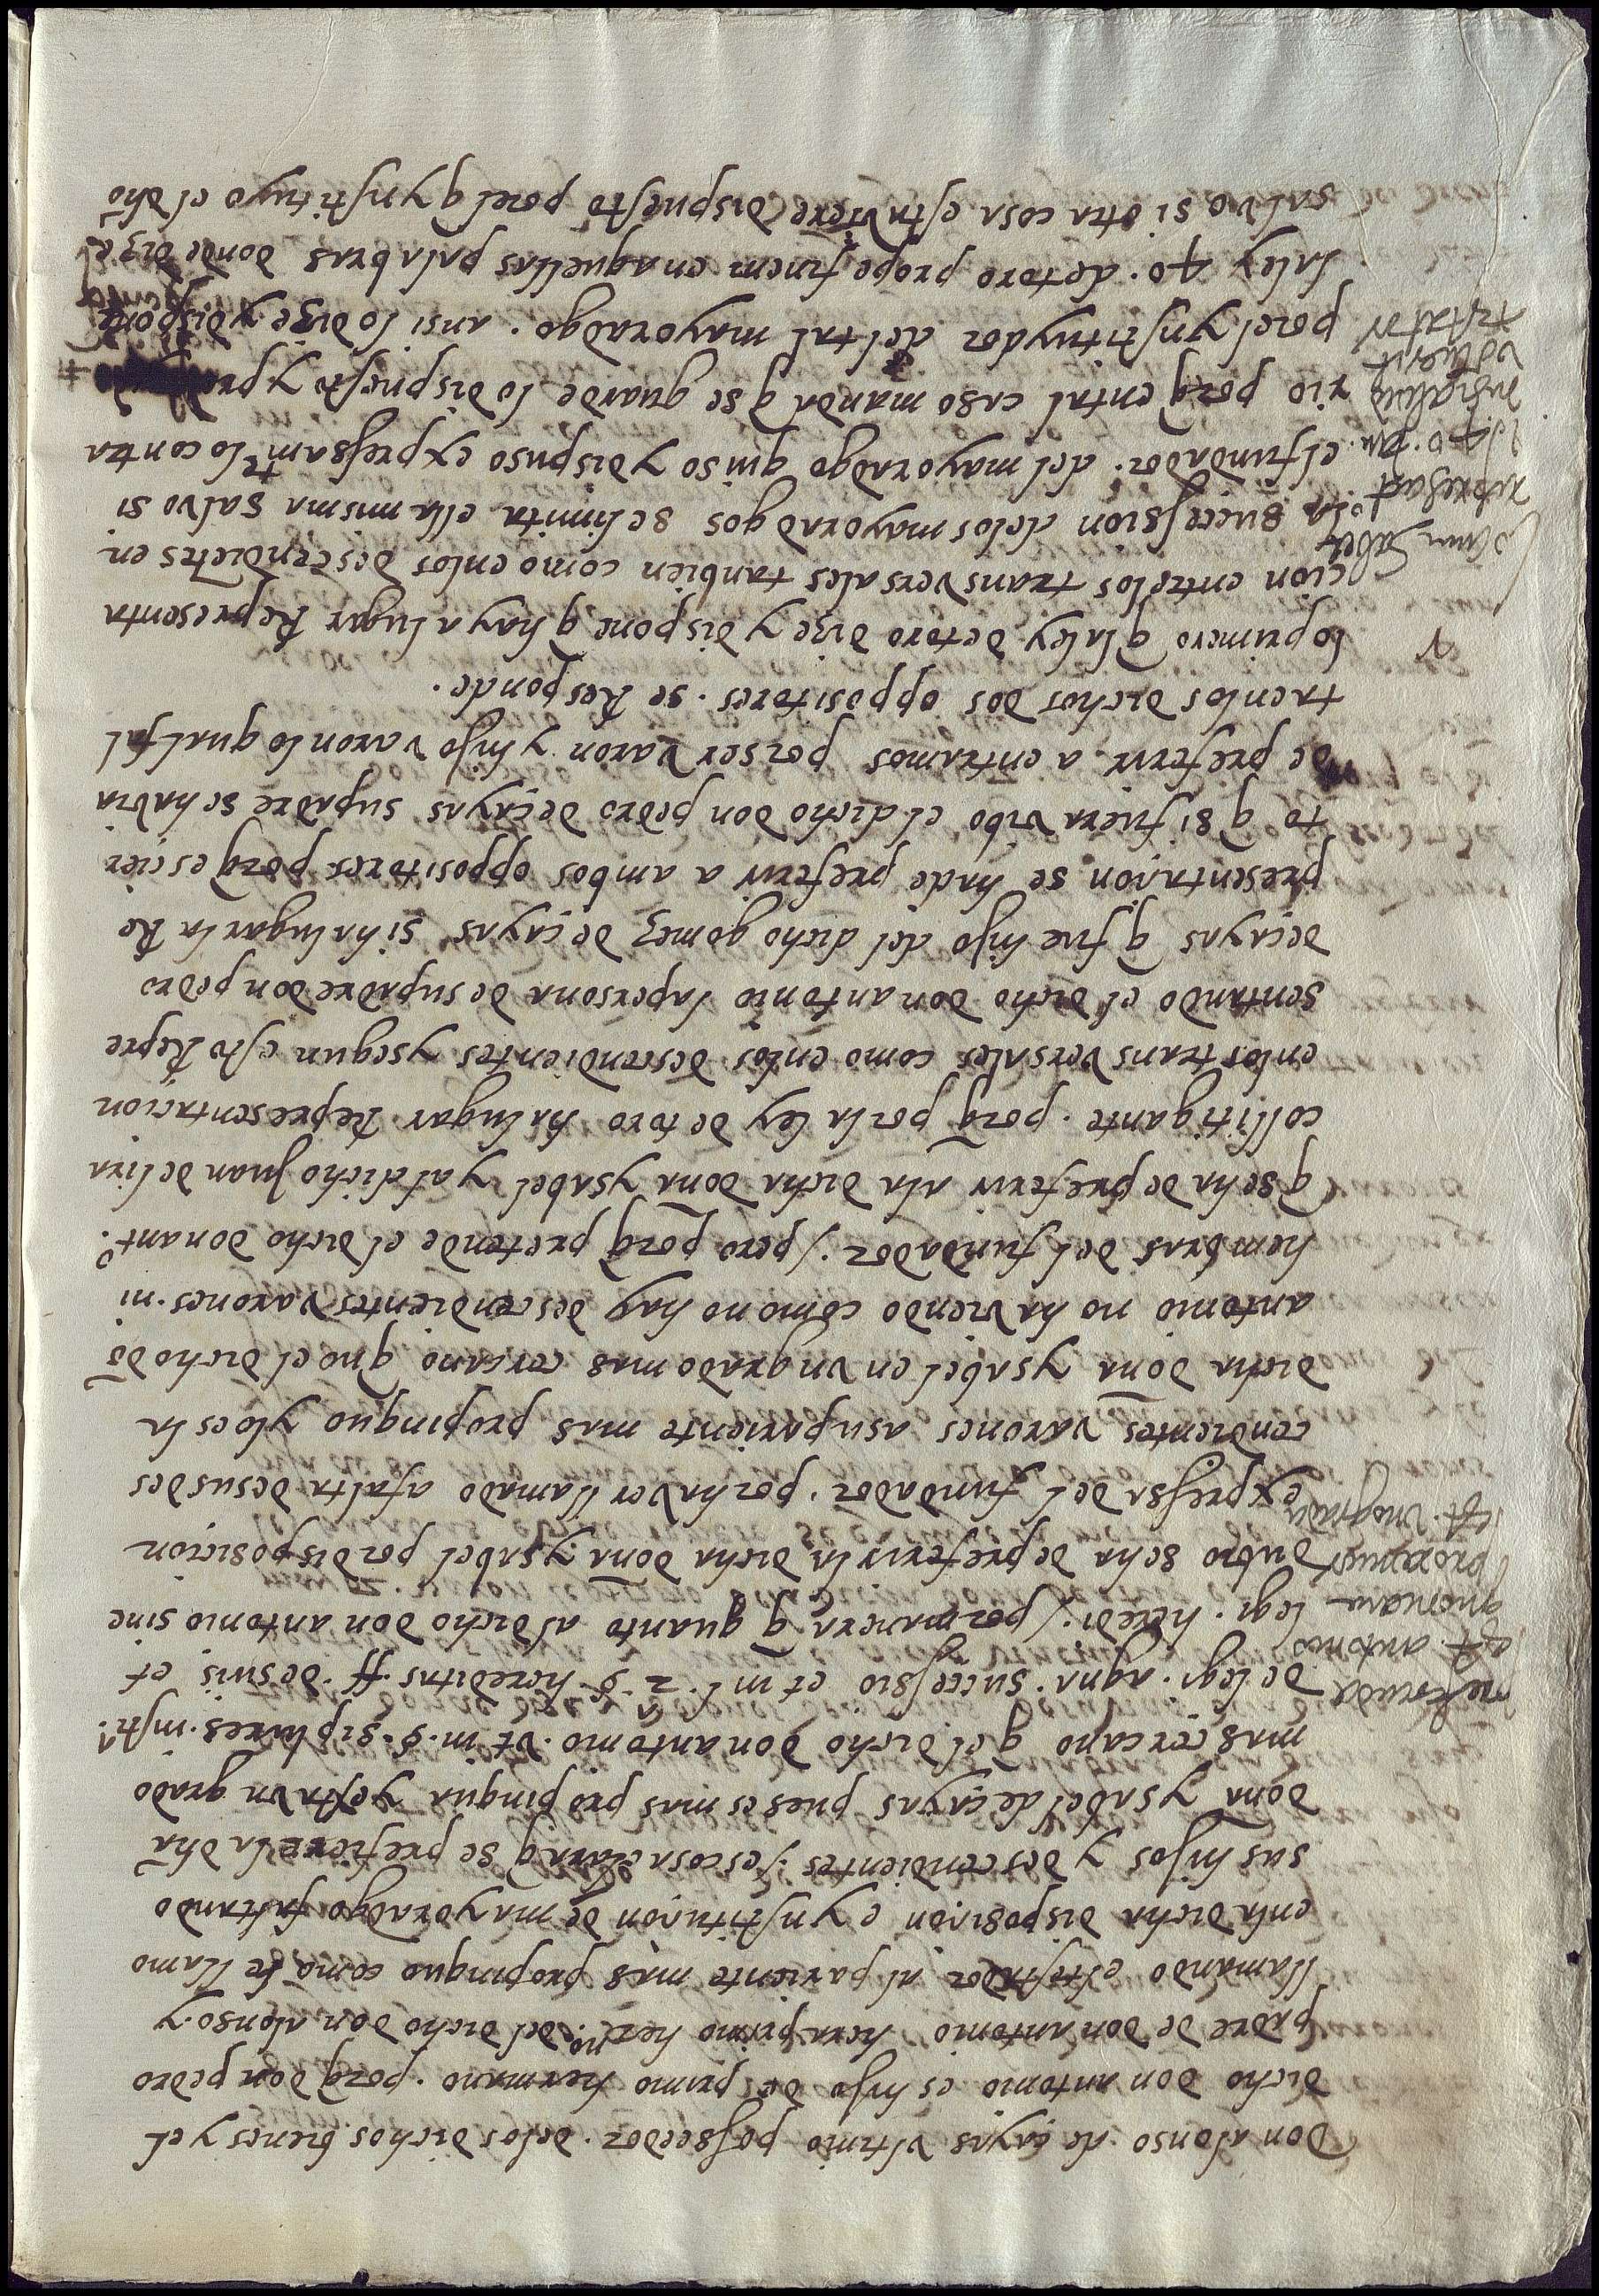 Don alonso de çayas vltimo possedor delos dichos bienes y el
dicho don antonio es hijo de primo hermano. porq don pedro
padre de don antonio hera primo herno. del dicho don alonso y
llamando el testador al pariente mas propinquo como le llamo
enla dicha disposicion e ynstitucion de mayoradgo faltando
sus hijos y descendientes / es cosa clara q se prefiere la dha
doña ysabel de çayas pues es mas propinqua y esta vn grado
mas cercano q el dicho don antonio. vt in. §. si plures. insti.
de legi. agna. successio et in l. 2. § hereditas. ff. de suis et
legi. heredi. / por manera q quanto al dicho don antonio sine
dubio se ha de preferir la dicha doña ysabel por disposicion
expressa del fundador. por haver llamado a falta de sus des
cendientes varones a su pariente mas propinquo y lo es la
dicha doña ysabel en vn grado mas cercano que el dicho dō
antonio no haviendo como no hay descendientes varones. ni
hembras del fundador. / pero porq pretende el dicho don anto.
q se ha de preferir ala dicha doña ysabel y al dicho Juan de lira
collitigante. porq por la ley de toro ha lugar Representacion
enlos transversales como enlos descendientes y segun esto Repre
sentando el dicho don antonio la persona de su padre don pedro
de çayas q fue hijo del dicho gomez de çayas si ha lugar la Re
presentacion se ha de preferir a ambos oppositores porq es cier
to q si fuera vibo el dicho don pedro de çayas su padre se habia
de preferir a entramos por ser varon y hijo varon lo qual fal
ta enlos dichos dos oppositores. se Responde.
lo primero q la ley de toro dize y dispone q haya lugar Representa
cion entre los transversales tanbien como enlos descendietes en
la succession delos mayoradgos se limita ella misma salvo si
el fundador. del mayoradgo quiso y dispuso expressamte lo contra
rio porq en tal caso manda q se guarde lo dispuesto y
por el ynstituydor del tal mayoradgo. ansi lo dize y dispone
la ley 40. de toro prope finem en aquellas palabras donde dize
salvo si otra cosa estuviere dispuesto por el q ynstituyo el dho